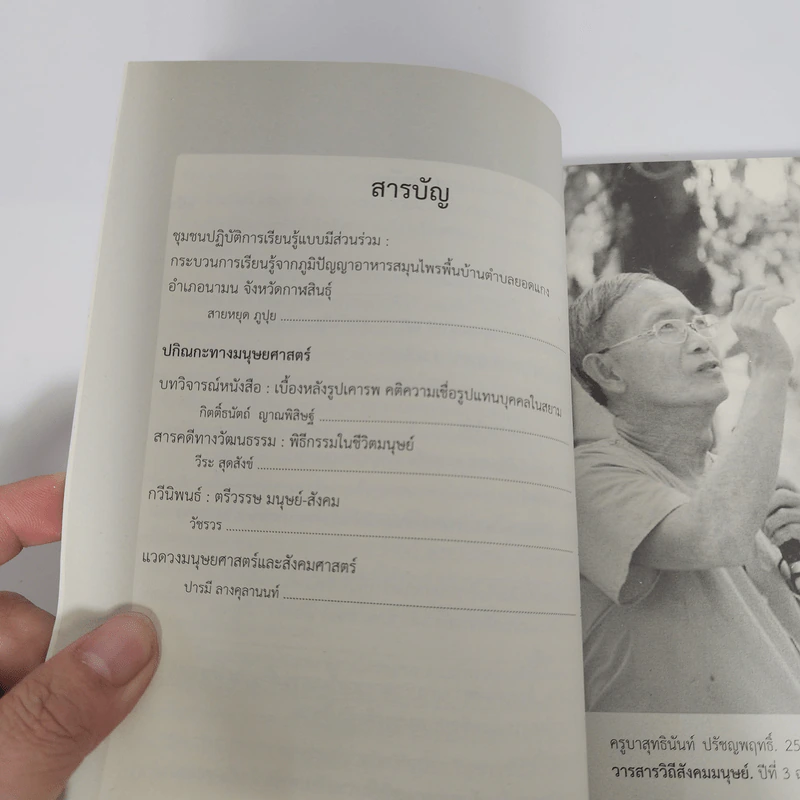 สารบัญ
ชุมชนปฏิบัติการเรียนรู้แบบมีส่วนร่วม :
กระบวนการเรียนรู้จากภูมิปัญญาอาหารสมุนไพรพื้นบ้านตำบลยอดแกง
อำเภอนามน จังหวัดกาฬสินธุ์
สายหยุด ภูปุย
ปกิณกะทางมนุษยศาสตร์
บทวิจารณ์หนังสือ : เบื้องหลังรูปเคารพ คติความเชื่อรูปแทนบุคคลในสยาม
กิตติ์ธนัตถ์ ญาณพิสิษฐ์
สารคดีทางวัฒนธรรม : พิธีกรรมในชีวิตมนุษย์
วีระ สุดสังข์
กวีนิพนธ์ : ตรีวรรษ มนุษย์-สังคม
วัชรวร
แวดวงมนุษยศาสตร์และสังคมศาสตร์
ปารมี ลางคุลานนท์
ครูบาสุทธินันท์ ปรัชญพฤทธิ์. 25
วารสารวิถีสังคมมนุษย์. ปีที่ 3